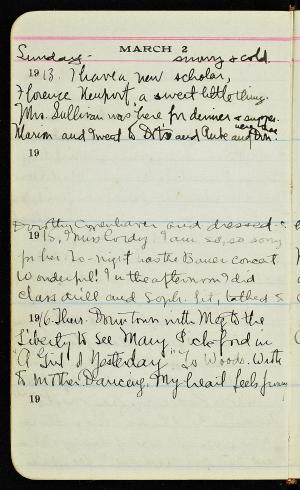 MARCH 2
Sunday. snowy & cold.
1913. I have a new scholar,
Florence Newport, a sweet little thing.
Mrs. Sullivan was here for dinner & supper.
Marion and I went to Dr's and Aunt and were there
19
Dorothy Copenhaver and dressed
1915, Miss Cordy. I am so, so sorry
for her. To-night was the Bauer concert
Wonderful! In the afternoon I did
class drill and Soph. Lit, talked &
1916. Thurs. Downtown with Meg to the
Liberty to see Mary Pickford in
"A Girl of Yesterday" To Woods. With
to Mother Dancing. My heart feels
19